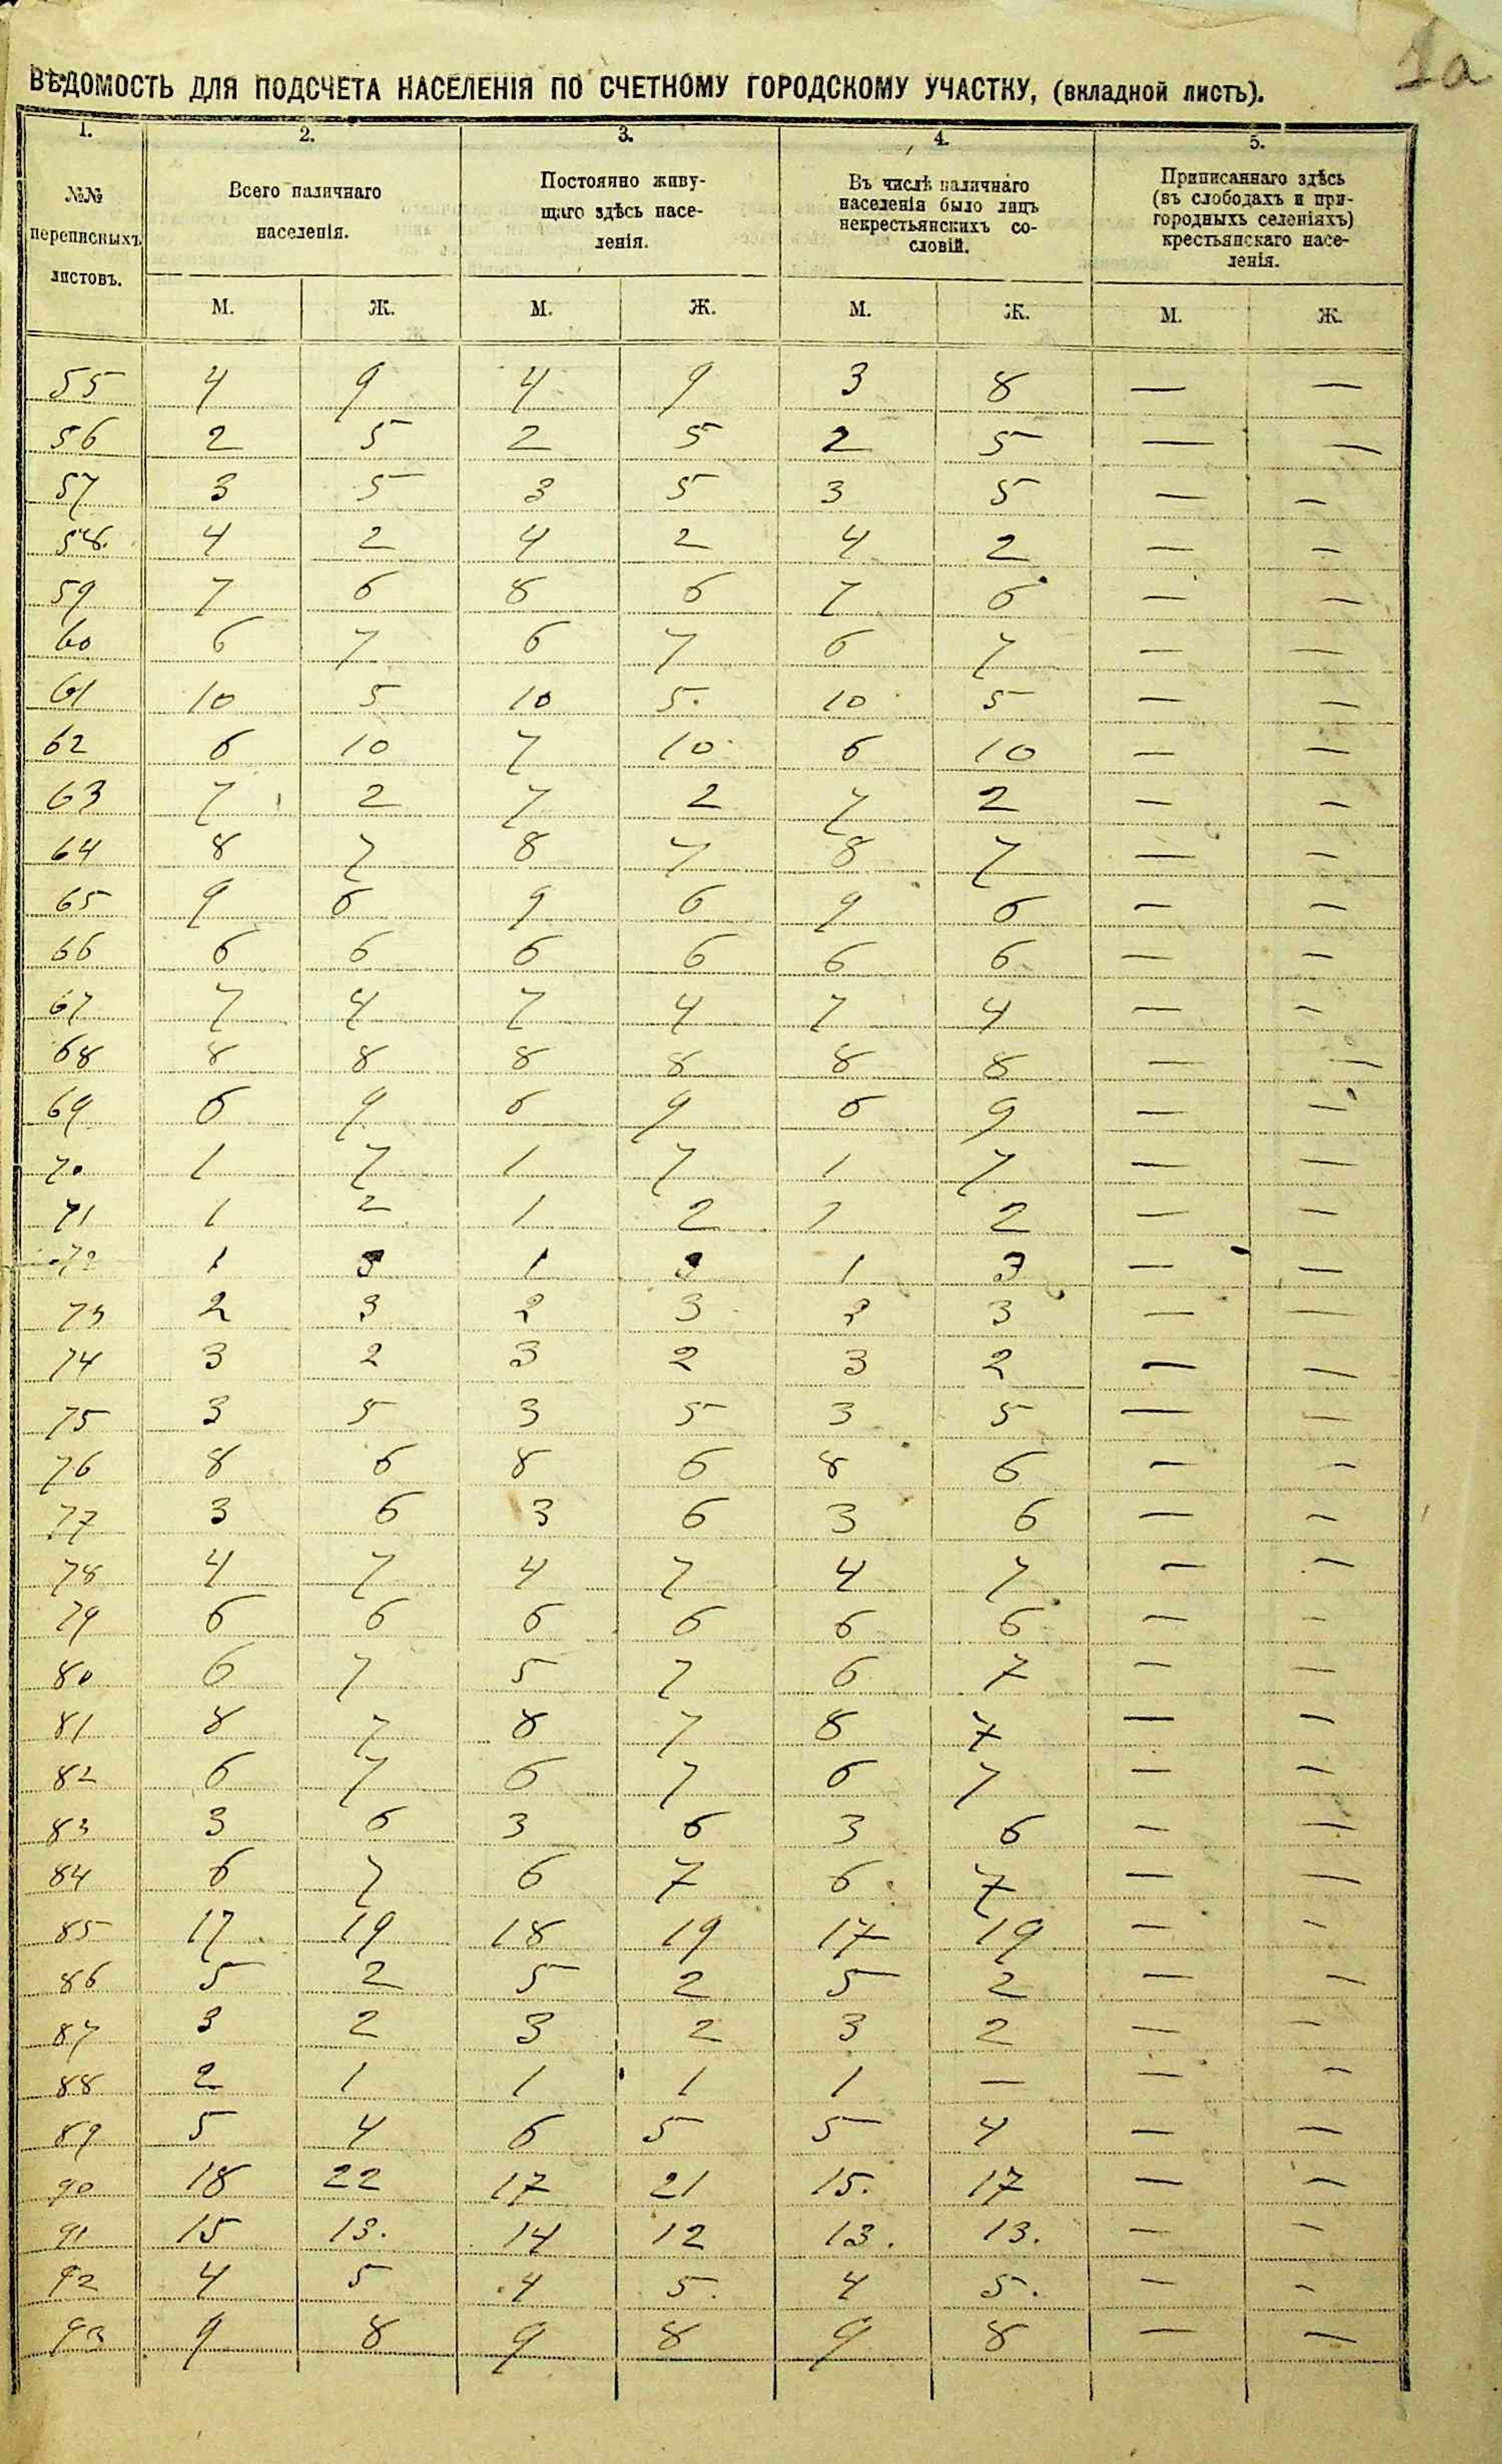 1а
ВѢДОМОСТЬ ДЛЯ ПОДСЧЕТА НАСЕЛЕНІЯ ПО СЧЕТНОМУ ГОРОДСКОМУ УЧАСТКУ, (вкладной листъ).
1. 2. 3. 4. 5.
№№ переписныхъ листовъ.
Всего наличнаго населенія.
Постоянно живу-
щаго здѣсь насе-
ленія.
Въ числѣ наличнаго
населенія было лицъ
некрестьянскихъ со-
словій.
Приписаннаго здѣсь
(въ слободахъ и при-
городныхъ селеніяхъ)
крестьянскаго насе-
ленія.
М. Ж. М. Ж. М. Ж. М. Ж.
55 4 9 4 9 3 8 — —
56 2 5 2 5 2 5 — —
57 3 5 3 5 3 5 — —
58. 4 2 4 2 4 2 — —
59 7 6 8 6 7 6 — —
60 6 7 6 7 6 7 — —
61 10 5 10 5. 10 5 — —
62 6 10 7 10 6 10 — —
63 7 2 7 2 7 2 — —
64 8 7 8 7 8 7 — —
65 9 6 9 6 9 6 — —
66 6 6 6 6 6 6 — —
67 7 4 7 4 7 4 — —
68 8 8 8 8 8 8 — —
69 6 9 6 9 6 9 — —
70 1 7 1 7 1 7 — —
71 1 2 1 2 1 2 — —
72 1 3 1 3 1 3 — —
73 2 3 2 3 2 3 — —
74 3 2 3 2 3 2 — —
75 3 5 3 5 3 5 — —
76 8 6 8 6 8 6 — —
77 3 6 3 6 3 6 — —
78 4 7 4 7 4 7 — —
79 6 6 6 6 6 6 — —
80 6 7 5 7 6 7 — —
81 8 7 8 7 8 7 — —
82 6 7 6 7 6 7 — —
83 3 6 3 6 3 6 — —
84 6 7 6 7 6 7 — —
85 17 19 18 19 17 19 — —
86 5 2 5 2 5 2 — —
87 3 2 3 2 3 2 — —
88 2 1 1 1 1 — — —
89 5 4 6 5 5 4 — —
90 18 22 17 21 15. 17 — —
91 15 13. 14 12 13. 13. — —
92 4 5 4 5. 4 5. — —
93 9 8 9 8 9 8 — —